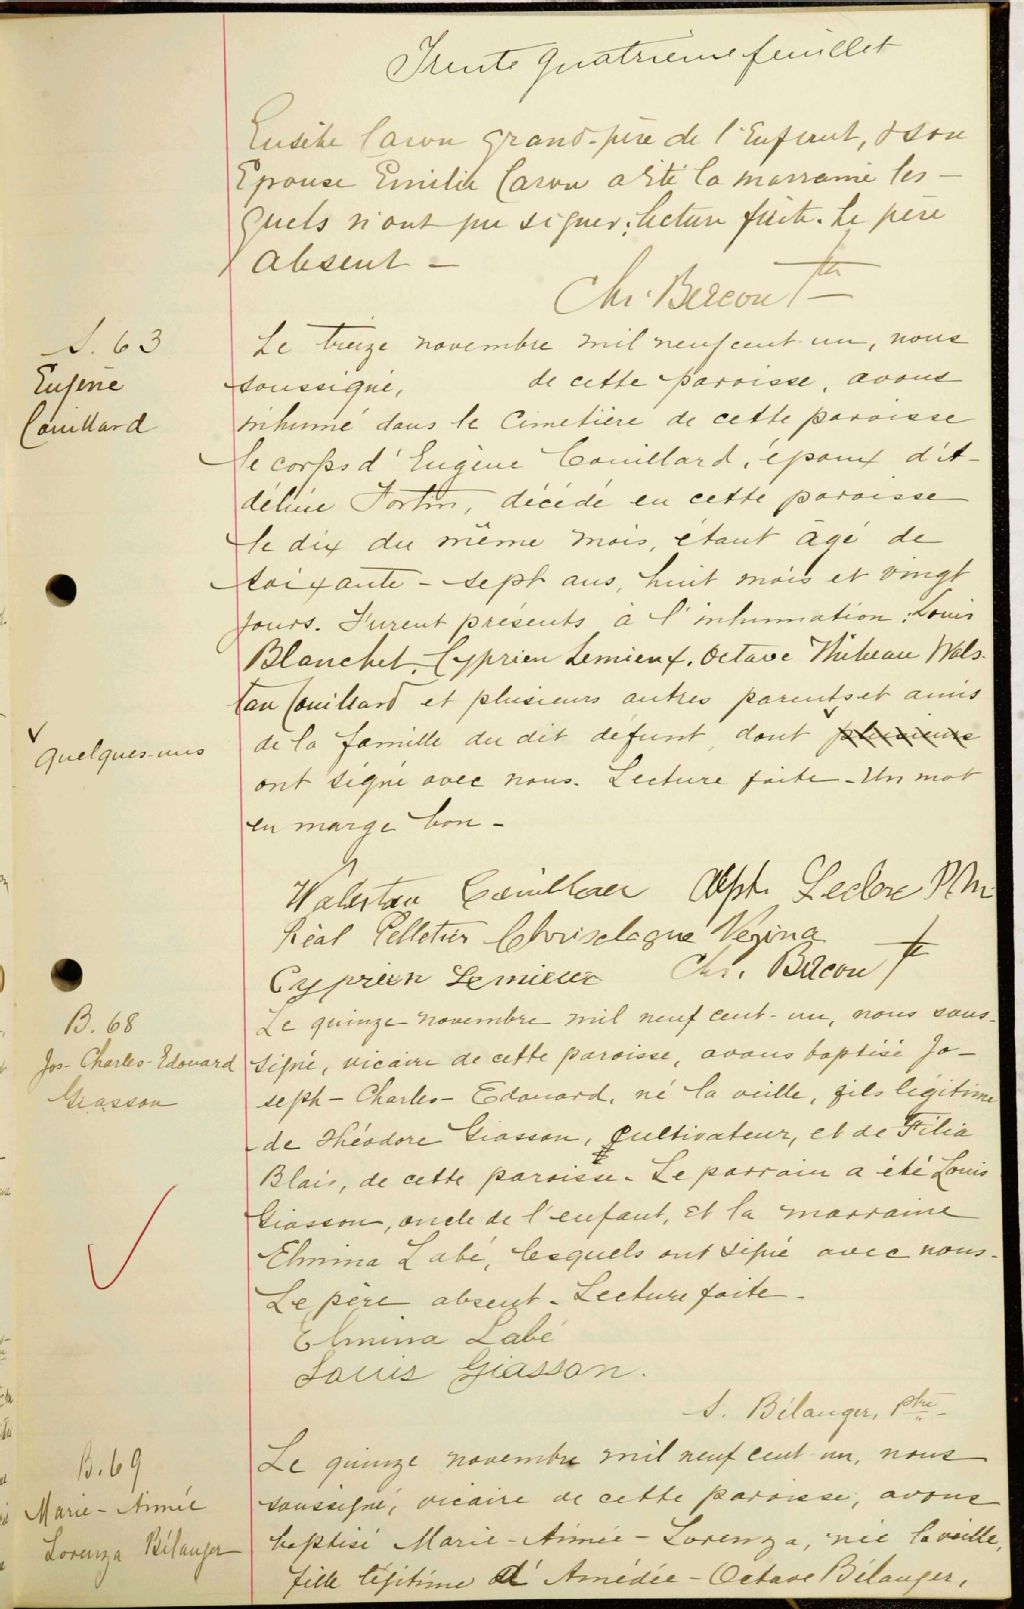 Trente quatrième feuillet
Eusèbe Caron grand-père de l'Enfant, & son
Epouse Emilie Caron a été la marraine les-
quels n'ont pu signer; lecture faite. Le père
absent -
Chs. Bercou Ptre
S. 63
Eugène
Couillard
Le treize novembre mil neuf cent un, nous
soussigné, de cette paroisse, avons
inhumé dans le Cimetière de cette paroisse
le corps d'Eugène Couillard, époux d'A-
déline Fortin, décédé en cette paroisse
le dix du même mois, étant âgé de
soixante-sept ans, huit mois et vingt
jours. Furent présents à l'inhumation: Louis
Blanchet, Cyprien Lemieux, Octave Thibeau Wals-
tan Couillard et plusieurs autres parents et amis
de la famille du dit défunt, dont plusieurs
quelques-uns
ont signé avec nous. Lecture faite - Un mot
en marge bon -
Walestan Couillard Alph. Leclerc P.M.
Réal Pelletier Chrisologue Vezina
Cyprien Lemieux Chs. Bercou Ptre
B. 68
Jos-Charles-Edouard
Giasson
Le quinze novembre mil neuf cent-un, nous sous-
signé, vicaire de cette paroisse, avons baptisé Jo-
seph-Charles-Edouard, né la veille, fils légitime
de Théodore Giasson, cultivateur, et de Filia
Blais, de cette paroisse. Le parrain a été Louis
Giasson, oncle de l'enfant, et la marraine
Elmina Labé, lesquels ont signé avec nous.
Le père absent. Lecture faite.
Elmina Labé
Louis Giasson.
S. Bélanger, Ptre
B. 69
Marie-Aimée
Lorenza Bélanger
Le quinze novembre mil neuf cent un, nous
soussigné, vicaire de cette paroisse, avons
baptisé Marie-Aimée-Lorenza, née la veille,
fille légitime d'Amédée-Octave Bélanger,